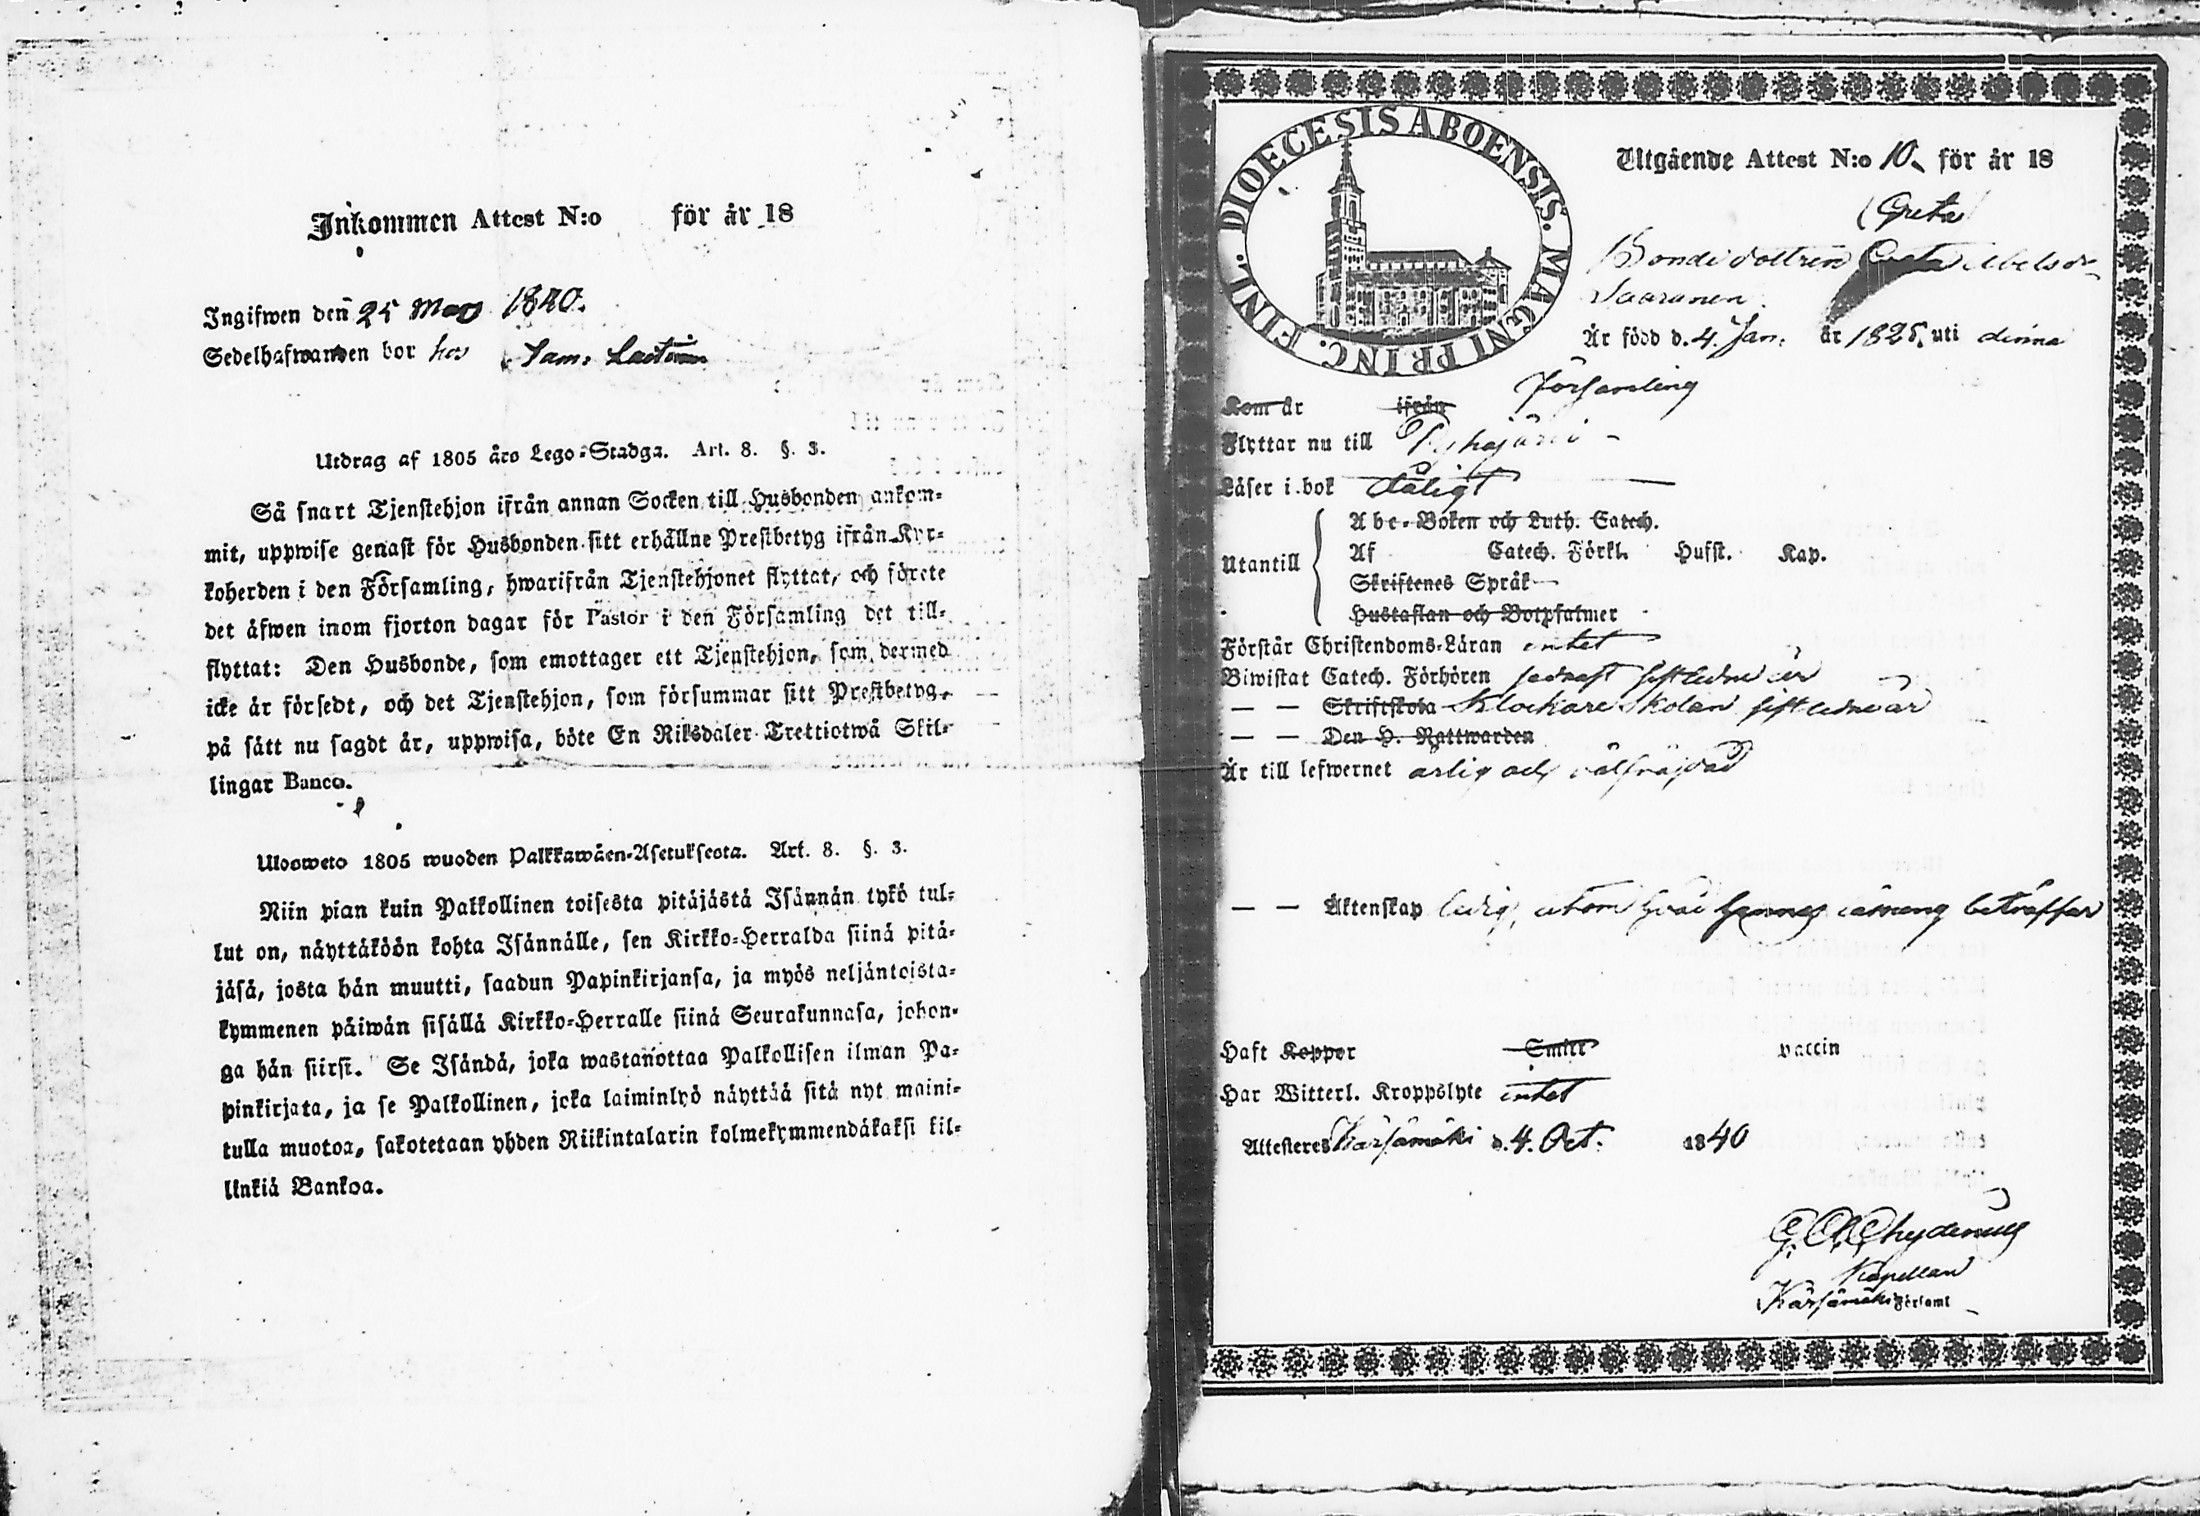 Inkommen Attest N:o för år 18
Ingifwen den 25 1840.
Sedelhafwanden bor hos Sam.
Utdrag af 1805 års Lego-Stadga. Art. 8. §. 3.
Så snart Tjenstehjon ifrån annan Socken till Husbonden ankom-
mit, uppwise genast för Husbonden sitt erhållne Prestbetyg ifrån Kyr-
koherden i den Församling, hwarifrån Tjenstehjonet flyttat, och förete
det äfwen inom fjorton dagar för Pastor i den Församling det till-
flyttat: Den Husbonde, som emottager ett Tjenstehjon, som dermed
icke är försedt, och det Tjenstehjon, som försummar sitt Prestbetyg,
på sätt nu sagdt är, uppwisa, böte En Riksdaler Trettiotwå Skil-
lingar Banco.
Ulosweto 1805 wuoden Palkkawäen-Asetuksesta. Art. 8. §. 3.
Niin pian kuin Palkollinen toisesta pitäjästä Isännän tykö tul-
lut on, näyttäköön kohta Isännälle, sen Kirkko-Herralda siinä pitä-
jäsä, josta hän muutti, saadun Papinkirjansa, ja myös neljäntoista-
kymmenen päiwän sisällä Kirkko-Herralle siinä Seurakunnasa, johon-
ga hän siirsi. Se Isändä, joka wastanottaa Palkollisen ilman Pa-
pinkirjata, ja se Palkollinen, joka laiminlyö näyttää sitä nyt maini-
tulla muotoa, sakotetaan yhden Riikintalarin kolmekymmendäkaksi kil-
linkiä Bankoa.
DIOECESIS ABOENSIS. MAGNI PRINC. FINL.
Utgående Attest N:o 10 för år 18
(Greta)
Bondedottren Greta Abelsdr
Saaranen.
Är född d. 4. Jan. år 1825, uti denna
Församling
Kom år ifrån
Flyttar nu till Pyhäjärvi
Läser i bok dåligt
Utantill
Abc-Boken och Luth. Catech.
Af Catech. Förkl. Hufst. Kap.
Skriftenes Språk
Hustaflan och Botpsalmer
Förstår Christendoms-Läran intet
Biwistat Catech. Förhören sednast sistledne år
— — Skriftskola Klockare skolan sistledne år
— — Den H. Nattwarden
Är till lefwernet ärlig och välfräjdad
— — Äktenskap ledig, utom hvad hennes betraffar
Haft Koppor Smitt vaccin
Har Witterl. Kroppslyte intet
Attesteres Kärsämäki d. 4. Oct. 1840
G. A. Chydenius
Kapellan
Kärsämäki Förlaml